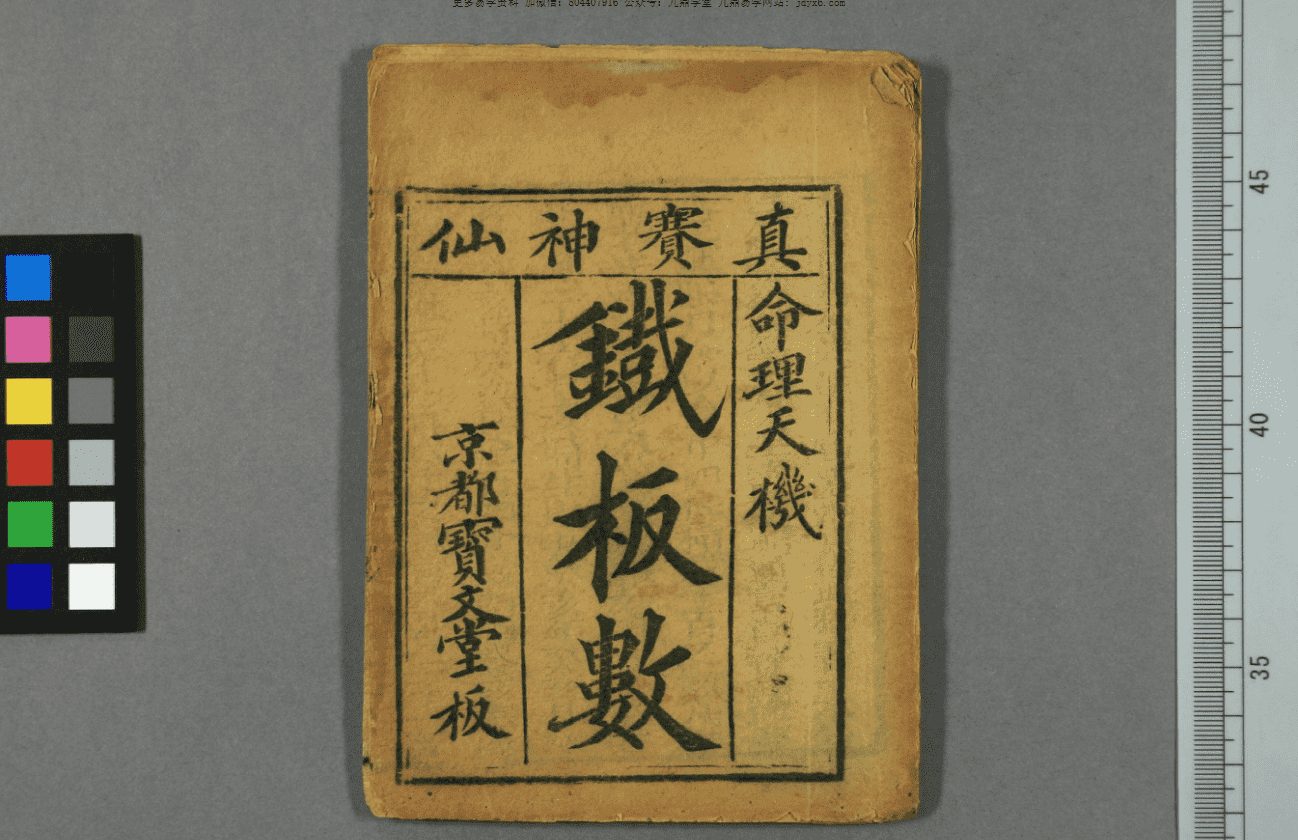 更多易学资料 加微信：504407916 公众号：九鼎学堂 九鼎易学网站：jdyx6.com
真賽神仙
命理天機
鐵板數
京都寶文堂板
45
40
35